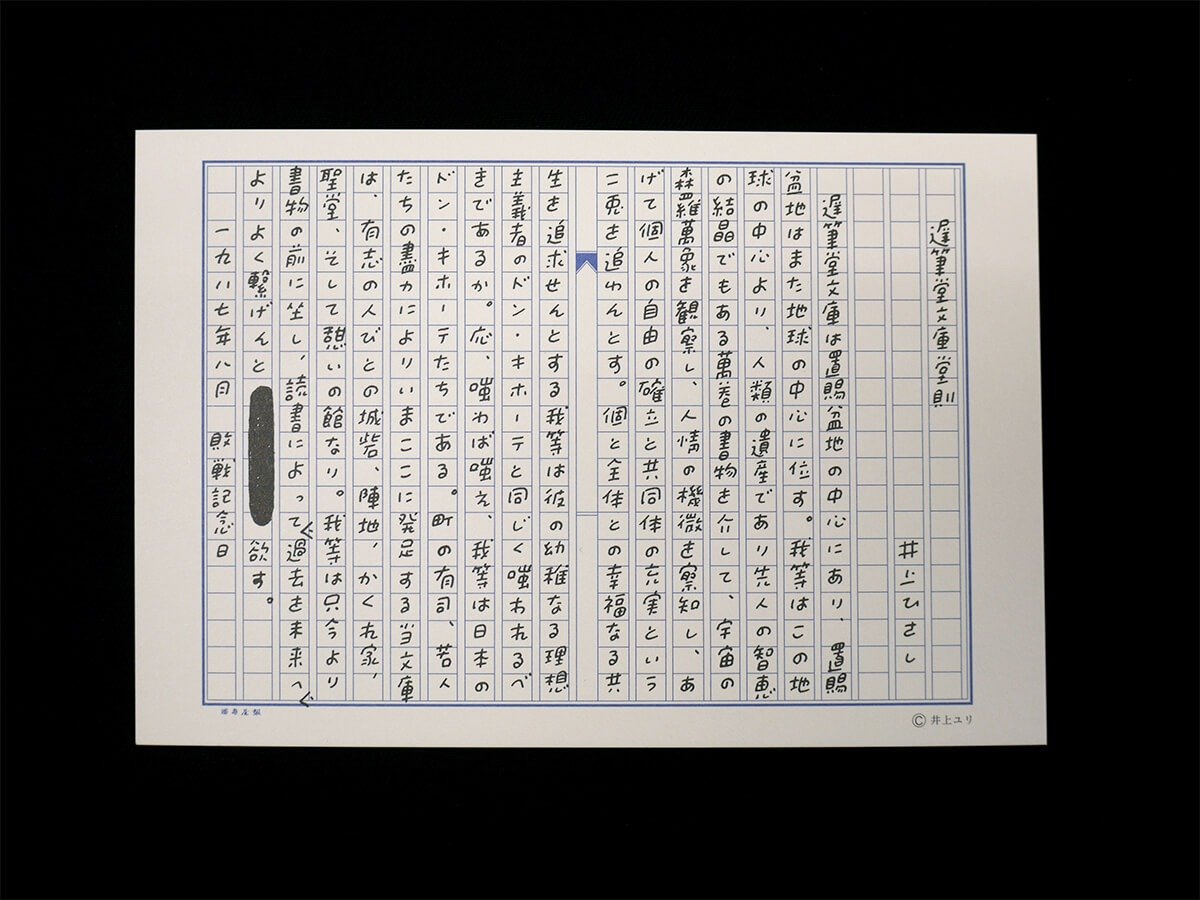 遅筆堂文庫堂則
井上ひさし
遅筆堂文庫は置賜盆地の中心にあり、置賜
盆地はまた地球の中心に位す。我等はこの地
球の中心より、人類の遺産であり先人の智恵
の結晶でもある萬巻の書物を介して、宇宙の
森羅萬象を観察し、人情の機微を察知し、あ
げて個人の自由の確立と共同体の充実という
二兎を追わんとす。個と全体との幸福なる共
生を追求せんとする我等は彼の幼稚なる理想
主義者のドン・キホーテと同じく嗤われるべ
きであるか。応、嗤わば嗤え、我等は日本の
ドン・キホーテたちである。町の有司、若人
たちの盡力によりいまここに発足する当文庫
は、有志の人びとの城砦、陣地、かくれ家、
聖堂、そして憩いの館なり。我等は只今より
書物の前に坐し、読書によって過去を未来へ
よりよく繋げんと欲す。
一九八七年八月 敗戦記念日
満寿屋製
© 井上ユリ